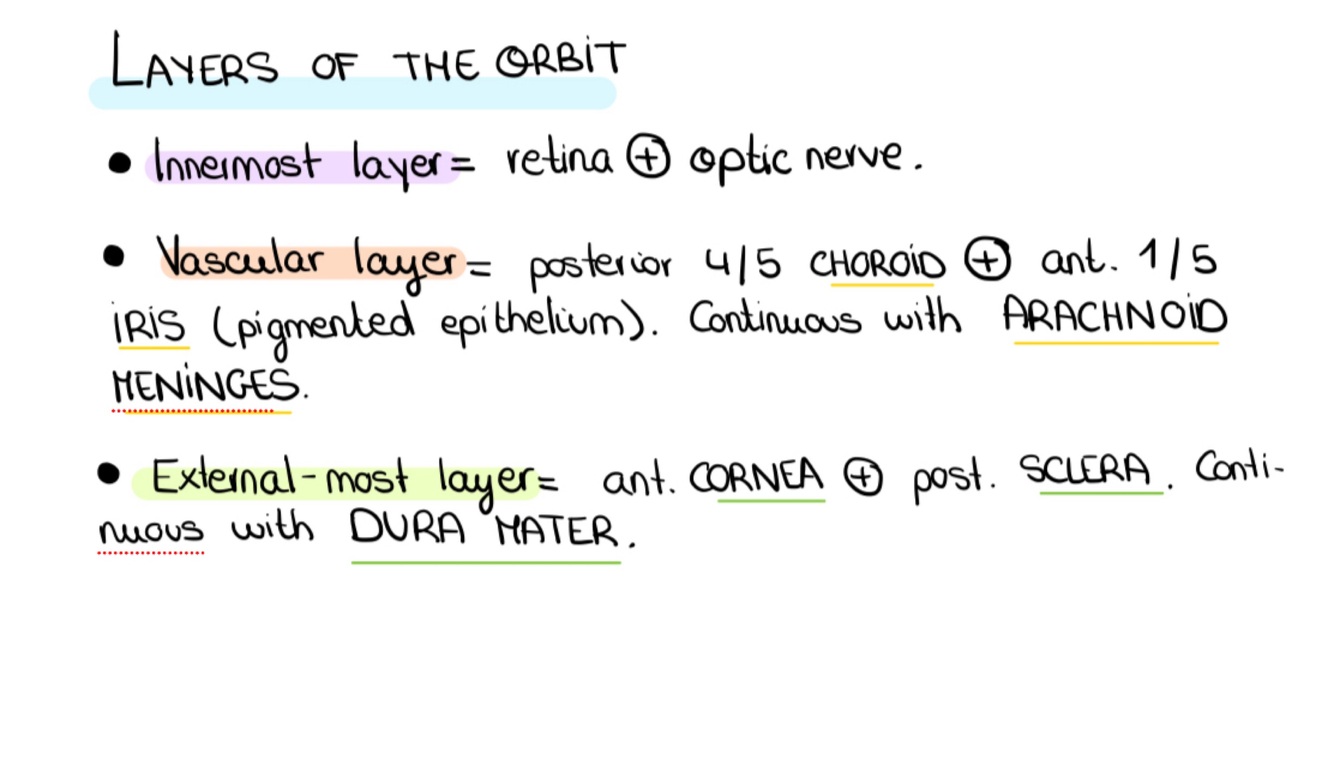 LAYERS OF THE ORBIT
• Innermost layer = retina ⊕ optic nerve.
• Vascular layer = posterior 4/5 CHOROID ⊕ ant. 1/5
IRIS (pigmented epithelium). Continuous with ARACHNOID
MENINGES.
• External-most layer = ant. CORNEA ⊕ post. SCLERA. Conti-
nuous with DURA MATER.